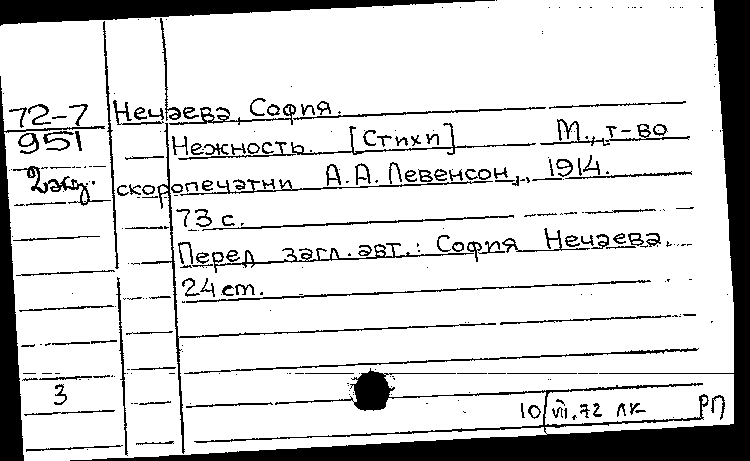 72-7 Нечаева, София.
951 Нежность. [Стихи] М., т-во
2 экз. скоропечатни А.А. Левенсон, 1914.
73 с.
Перед загл. авт.: София Нечаева.
24 см.
3
10/VII.72 ЛК РП